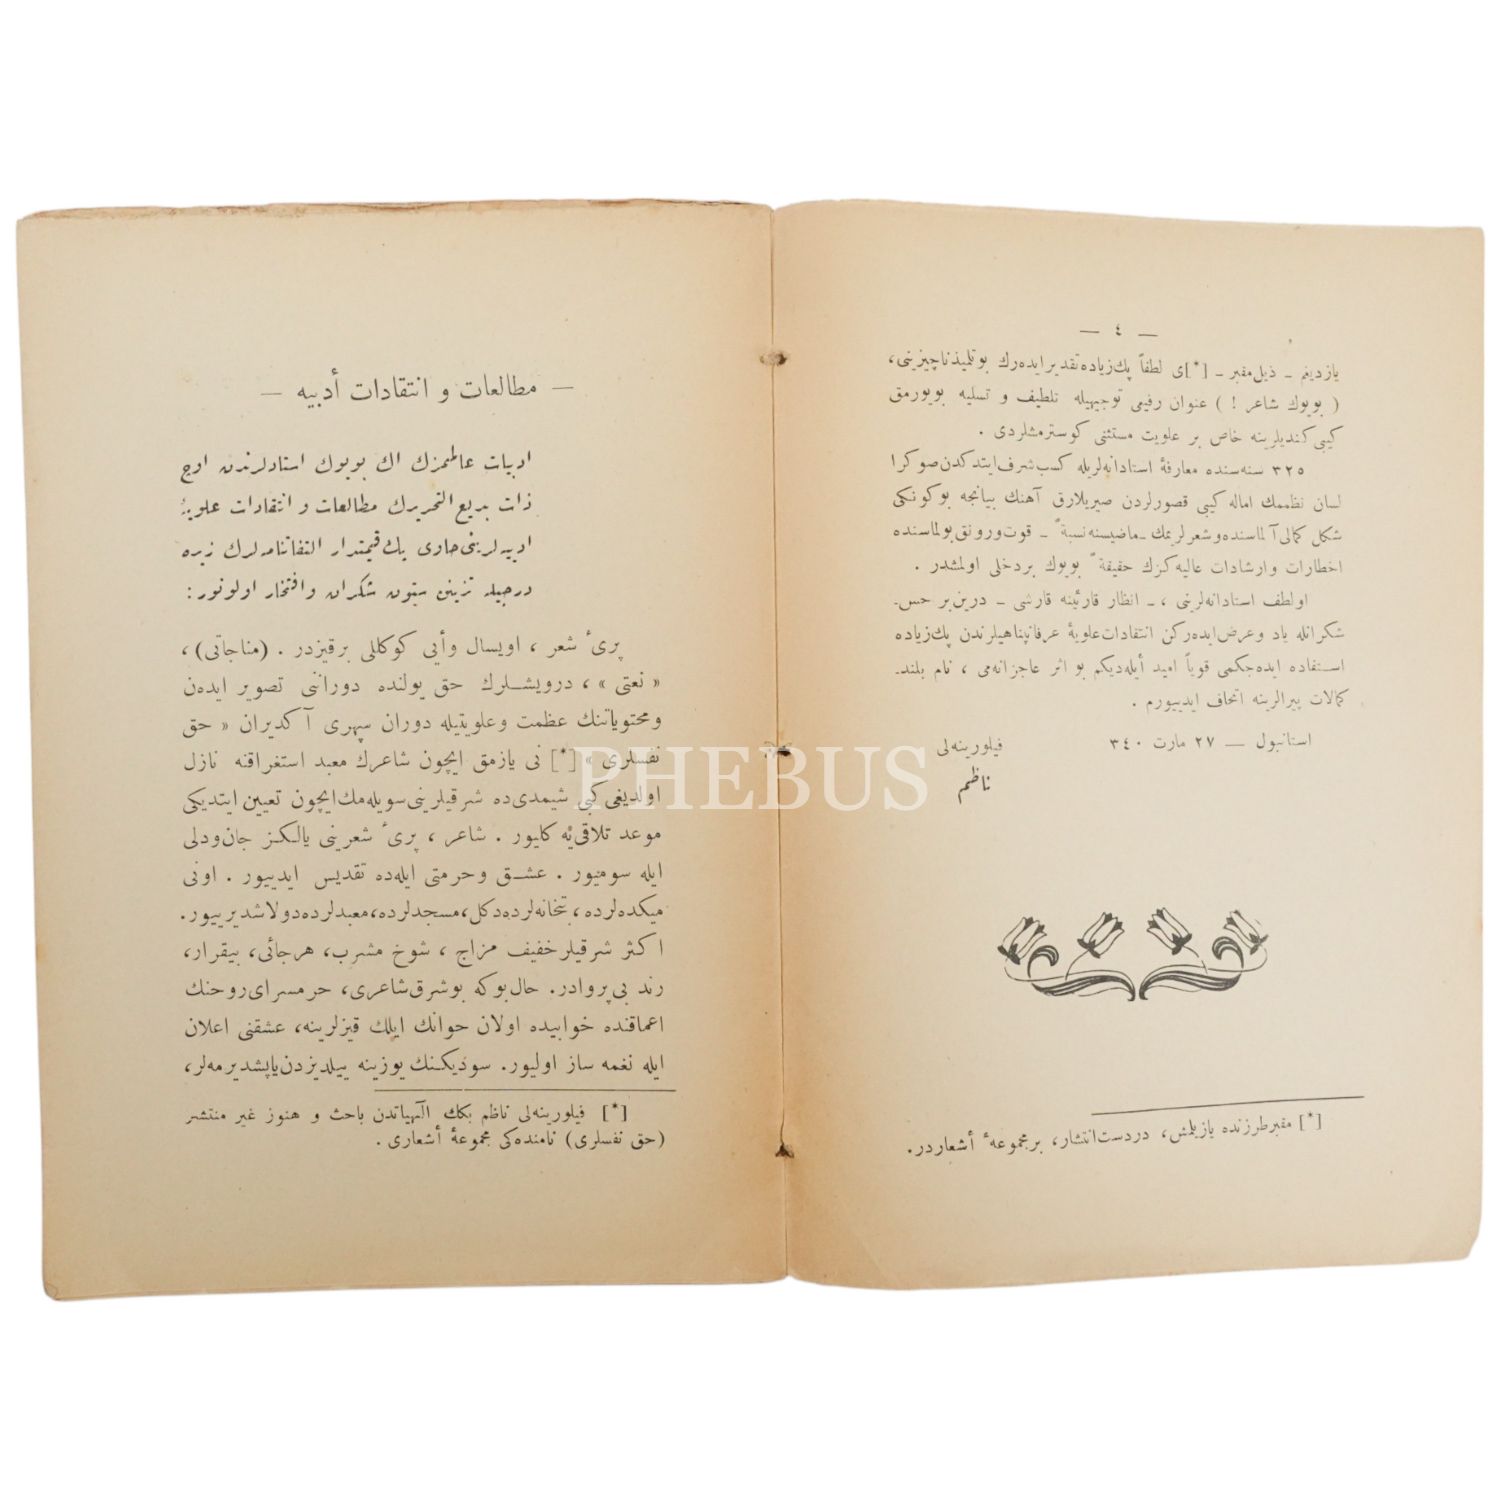 — ٤ —
یازدیغم ـ ذیل مقبر ـ [*]ی لطفاً پك‌زیاده تقدیر ایده‌رك بوتلمیذ ناچیزینی،
( بویوك شاعر ! ) عنوان رفیمی توجیهیله تلطیف و تسلیه بویورمق
كیبی كندیلرینه خاص بر علویت مستثنی كوسترمشلردی .
٣٢٥ سنه‌سنده معارفهٔ استادانه‌لریله كسب شرف ایتدكدن صوكرا
لسان نظممك اماله كیبی قصورلردن صیریلارق آهنك بیانجه بوكونكی
شكل كمالی آلماسنده و شعرلریمك ـ ماضیسنه نسبةً ـ قوت ورونق بولماسنده
اخطارات وارشادات عالیه‌كزك حقیقةً بویوك بردخلی اولمشدر .
اولطف استادانه‌لرینی ، ـ انظار قارئینه قارشی ـ درین بر حس‌ـ
شكرانله یاد وعرض ایده‌ركن انتقادات علویهٔ عرفانپناهیلرندن پك‌زیاده
استفاده ایده‌جكمی قویاً امید أیله‌دیكم بو اثر عاجزانه‌می ، نام بلند‌ـ
كمالات پیرالرینه اتحاف ایدییورم .
استانبول — ٢٧ مارت ٣٤٠
فیلورینه‌لی
ناظم
[*] مقبرطرزنده یازیلمش، دردست‌انتشار، برمجموعهٔ أشعاردر.
— مطالعات و انتقادات أدبیه —
ادبیات عالممزك اك بویوك استادلرندن اوچ
ذات بدیع التحریرك مطالعات و انتقادات علویهٔ
ادبیه‌لرینی حاوی پك قیمتدار التفاتنامه‌لرك زیره
درجیله تزیین ستون شكران وافتخار اولونور :
پریٔ شعر ، اویسال وأیی كوكللی برقیزدر . (مناجاتی) ،
« نعتی » ، درویشلرك حق یولنده دوراننی تصویر ایدەن
ومحتویاتنك عظمت وعلویتیله دوران سپهری آكدیران « حق
نفسلری » [*] نی یازمق ایچون شاعرك معبد استغراقنه نازل
اولدیغی كبی شیمدی‌ده شرقیلرینی سویله‌مك ایچون تعیین ایتدیكی
موعد تلاقی‌یه كلیور . شاعر ، پریٔ شعرینی یالكز جان‌ودلی
ایله سومیور . عشق وحرمتی ایله‌ده تقدیس ایدییور . اونی
میكده‌لرده ، بتخانه‌لرده دكل، مسجدلرده، معبدلرده دولاشدیرییور.
اكثر شرقیلر خفیف مزاج ، شوخ مشرب، هرجائی، بیقرار،
رند بی‌پروادر. حال‌بوكه بوشرق شاعری، حرمسرای روحنك
اعماقنده خوابیده اولان حوانك ایلك قیزلرینه، عشقنی اعلان
ایله نغمه ساز اولیور. سودیكنك یوزینه ییلدیزدن یاپشدیرمه‌لر،
[*] فیلورینه‌لی ناظم بكك الهیاتدن باحث و هنوز غیر منتشر
(حق نفسلری) نامنده‌كی مجموعهٔ أشعاری .
PHEBUS